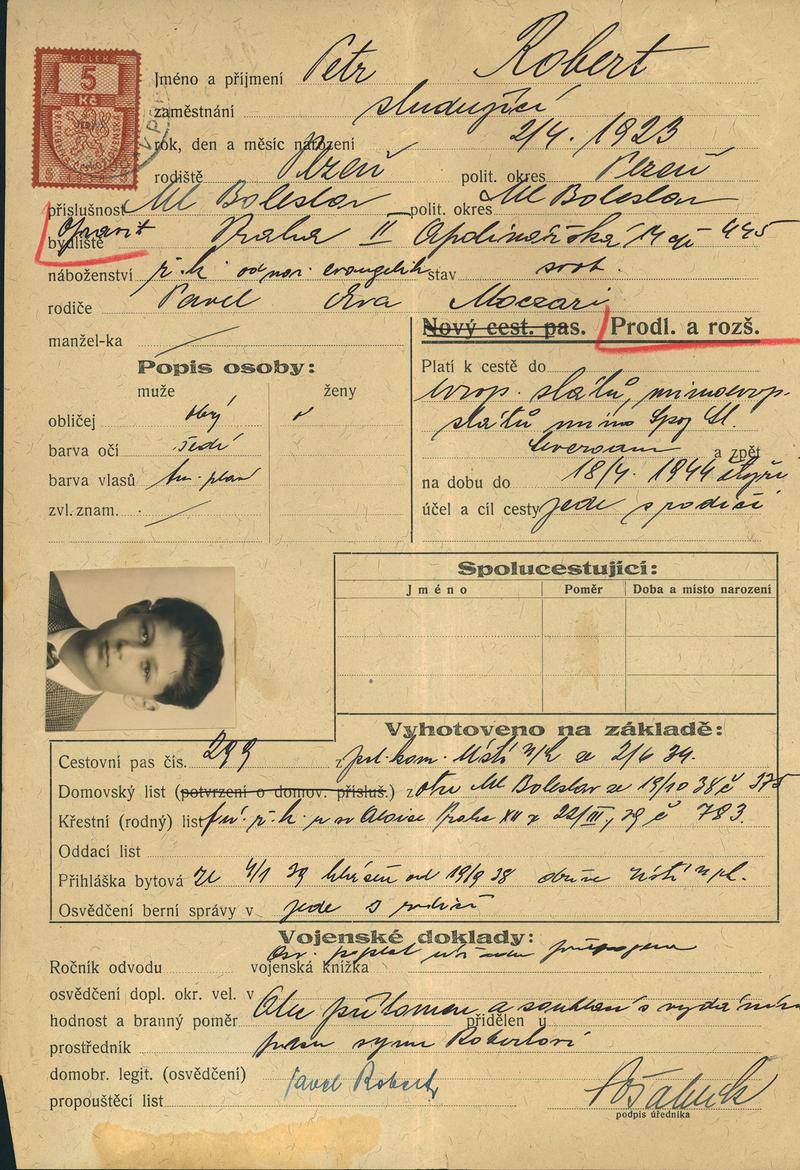 KOLEK
5
Kč
Jméno a příjmení Petr Robert
zaměstnání studující
rok, den a měsíc narození 2/4. 1923
rodiště Plzeň polit. okres Plzeň
příslušnost Ml Boleslav polit. okres Ml Boleslav
Opravit
bydliště Praha II Apolinářská 14 čp 445
náboženství ř. k. od nar. evangelík stav svob.
rodiče Pavel Eva Moczari
manžel-ka
Nový cest. pas. Prodl. a rozš.
Popis osoby:
muže ženy
obličej
barva očí šedé
barva vlasů tm. plavé
zvl. znam.
Platí k cestě do
evrop. států, mimoevrop.
států mimo Spoj. St.
Severoam a zpět
na dobu do 18/4. 1944 čtyři
účel a cíl cesty jede s rodiči
Spolucestující:
Jméno Poměr Doba a místo narození
Vyhotoveno na základě:
Cestovní pas čís. 299 z pol. kom. Ústí n/L ze 2/6 34.
Domovský list (potvrzení o domov. přísluš.) z obce Ml Boleslav ze 19/10 38 č 375
Křestní (rodný) list ř. k. u sv Aloise Praha XII z 22/III, 39 č 783.
Oddací list
Přihláška bytová ze 4/1 39 hlášen od 19/9 38 dříve Ústí n/L.
Osvědčení berní správy v jede s rodiči
Vojenské doklady:
Ročník odvodu vojenská knížka
osvědčení dopl. okr. vel. v
hodnost a branný poměr Otec přítomen a souhlasí s vydáním
přidělen u
prostředník pasu synu Robertovi
domobr. legit. (osvědčení) Pavel Robert
propouštěcí list
podpis úředníka